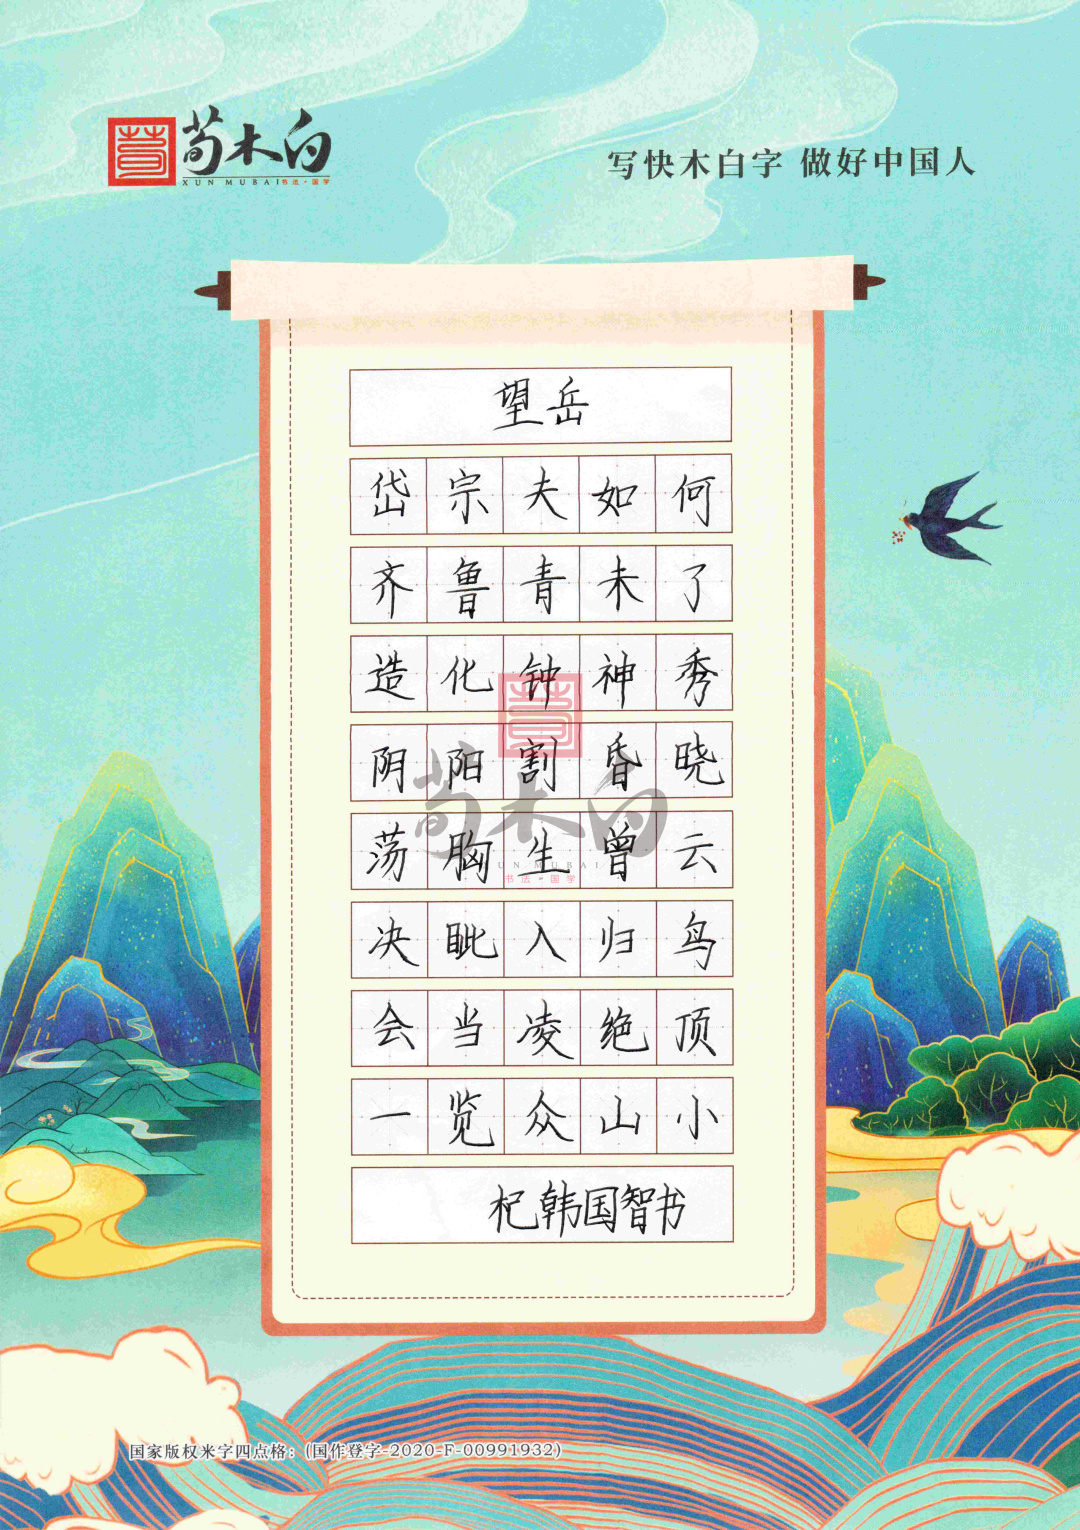 荀木白
XUN MUBAI 书法·国学
写快木白字 做好中国人
望岳
岱宗夫如何
齐鲁青未了
造化钟神秀
阴阳割昏晓
荡胸生曾云
决眦入归鸟
会当凌绝顶
一览众山小
杞韩国智书
荀木白
XUN MUBAI
书法·国学
国家版权米字四点格：(国作登字-2020-F-00991932)